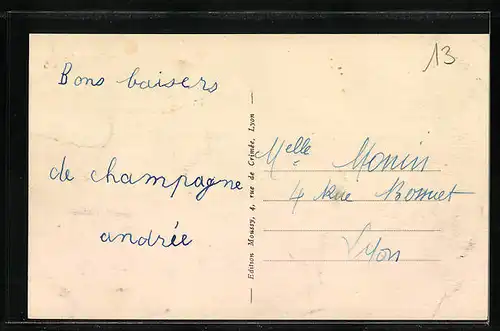 13
Bons baisers
de champagne
andrée
Edition Moussy, 4, rue de Crimée, Lyon
Melle Monin
4 Rue Bossuet
Lyon